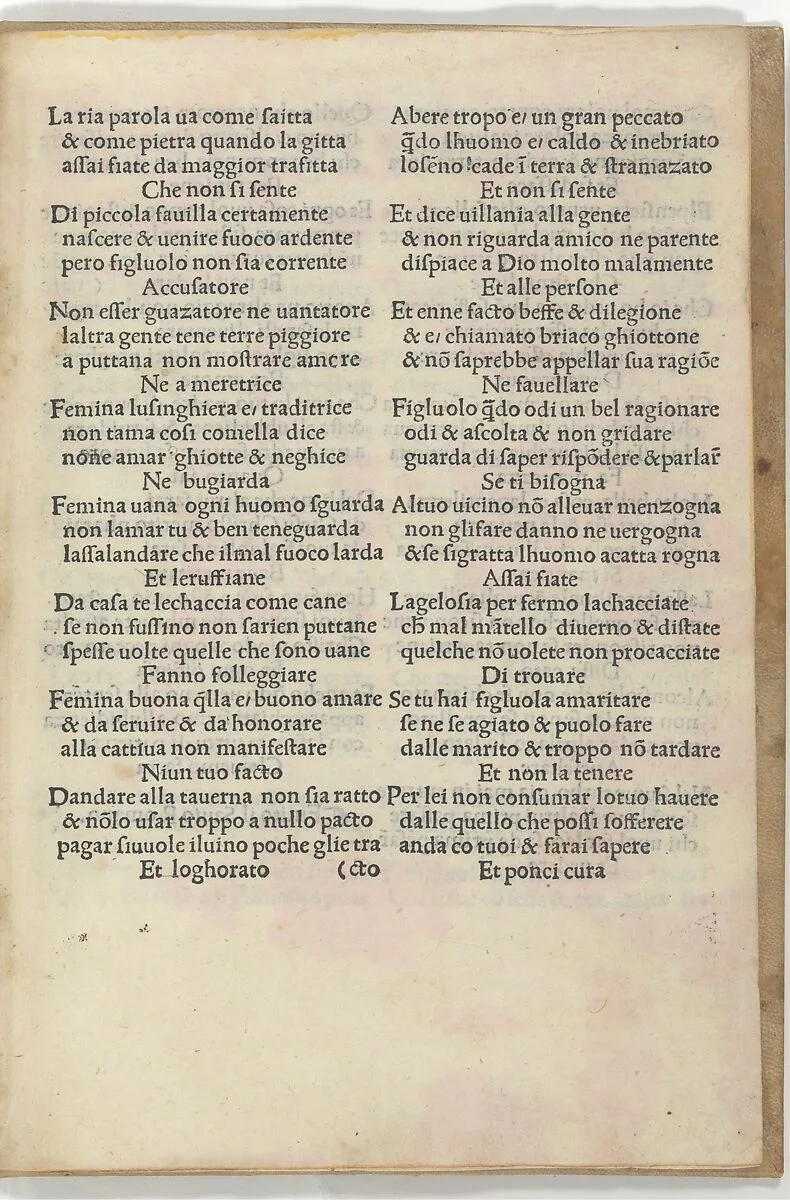 La ria parola ua come ſaitta
& come pietra quando la gitta
aſſai fiate da maggior trafitta
Che non ſi ſente
Di piccola fauilla certamente
naſcere & uenire fuoco ardente
pero figluolo non ſia corrente
Accuſatore
Non eſſer guazatore ne uantatore
laltra gente tene terre piggiore
a puttana non moſtrare amore
Ne a meretrice
Femina luſinghiera e/ traditrice
non tama coſi comella dice
none amar ghiotte & neghice
Ne bugiarda
Femina uana ogni huomo ſguarda
non lamar tu & ben teneguarda
laſſalandare che ilmal fuoco larda
Et leruffiane
Da caſa te lechaccia come cane
ſe non fuſſino non ſarien puttane
ſpeſſe uolte quelle che ſono uane
Fanno folleggiare
Femina buona q̄lla e/ buono amare
& da ſeruire & da honorare
alla cattiua non manifeſtare
Niun tuo facto
Dandare alla tauerna non ſia ratto
& nōlo uſar troppo a nullo pacto
pagar ſiuuole iluino poche glie tra
Et loghorato (cto
Abere tropo e/ un gran peccato
q̄do lhuomo e/ caldo & inebriato
loſēno cade ī terra & ſtramazato
Et non ſi ſente
Et dice uillania alla gente
& non riguarda amico ne parente
diſpiace a Dio molto malamente
Et alle perſone
Et enne facto beffe & dilegione
& e/ chiamato briaco ghiottone
& nō ſaprebbe appellar ſua ragiōe
Ne fauellare
Figluolo q̄do odi un bel ragionare
odi & aſcolta & non gridare
guarda di ſaper riſpōdere &parlar̄
Se ti biſogna
Altuo uicino nō alleuar menzogna
non glifare danno ne uergogna
&ſe ſigratta lhuomo acatta rogna
Aſſai fiate
Lageloſia per fermo lachacciate
ch̄ mal mātello diuerno & diſtate
quelche nō uolete non procacciate
Di trouare
Se tu hai figluola amaritare
ſe ne ſe agiato & puolo fare
dalle marito & troppo nō tardare
Et non la tenere
Per lei non conſumar lotuo hauere
dalle quello che poſſi ſofferere
anda co tuoi & farai ſapere
Et ponci cura